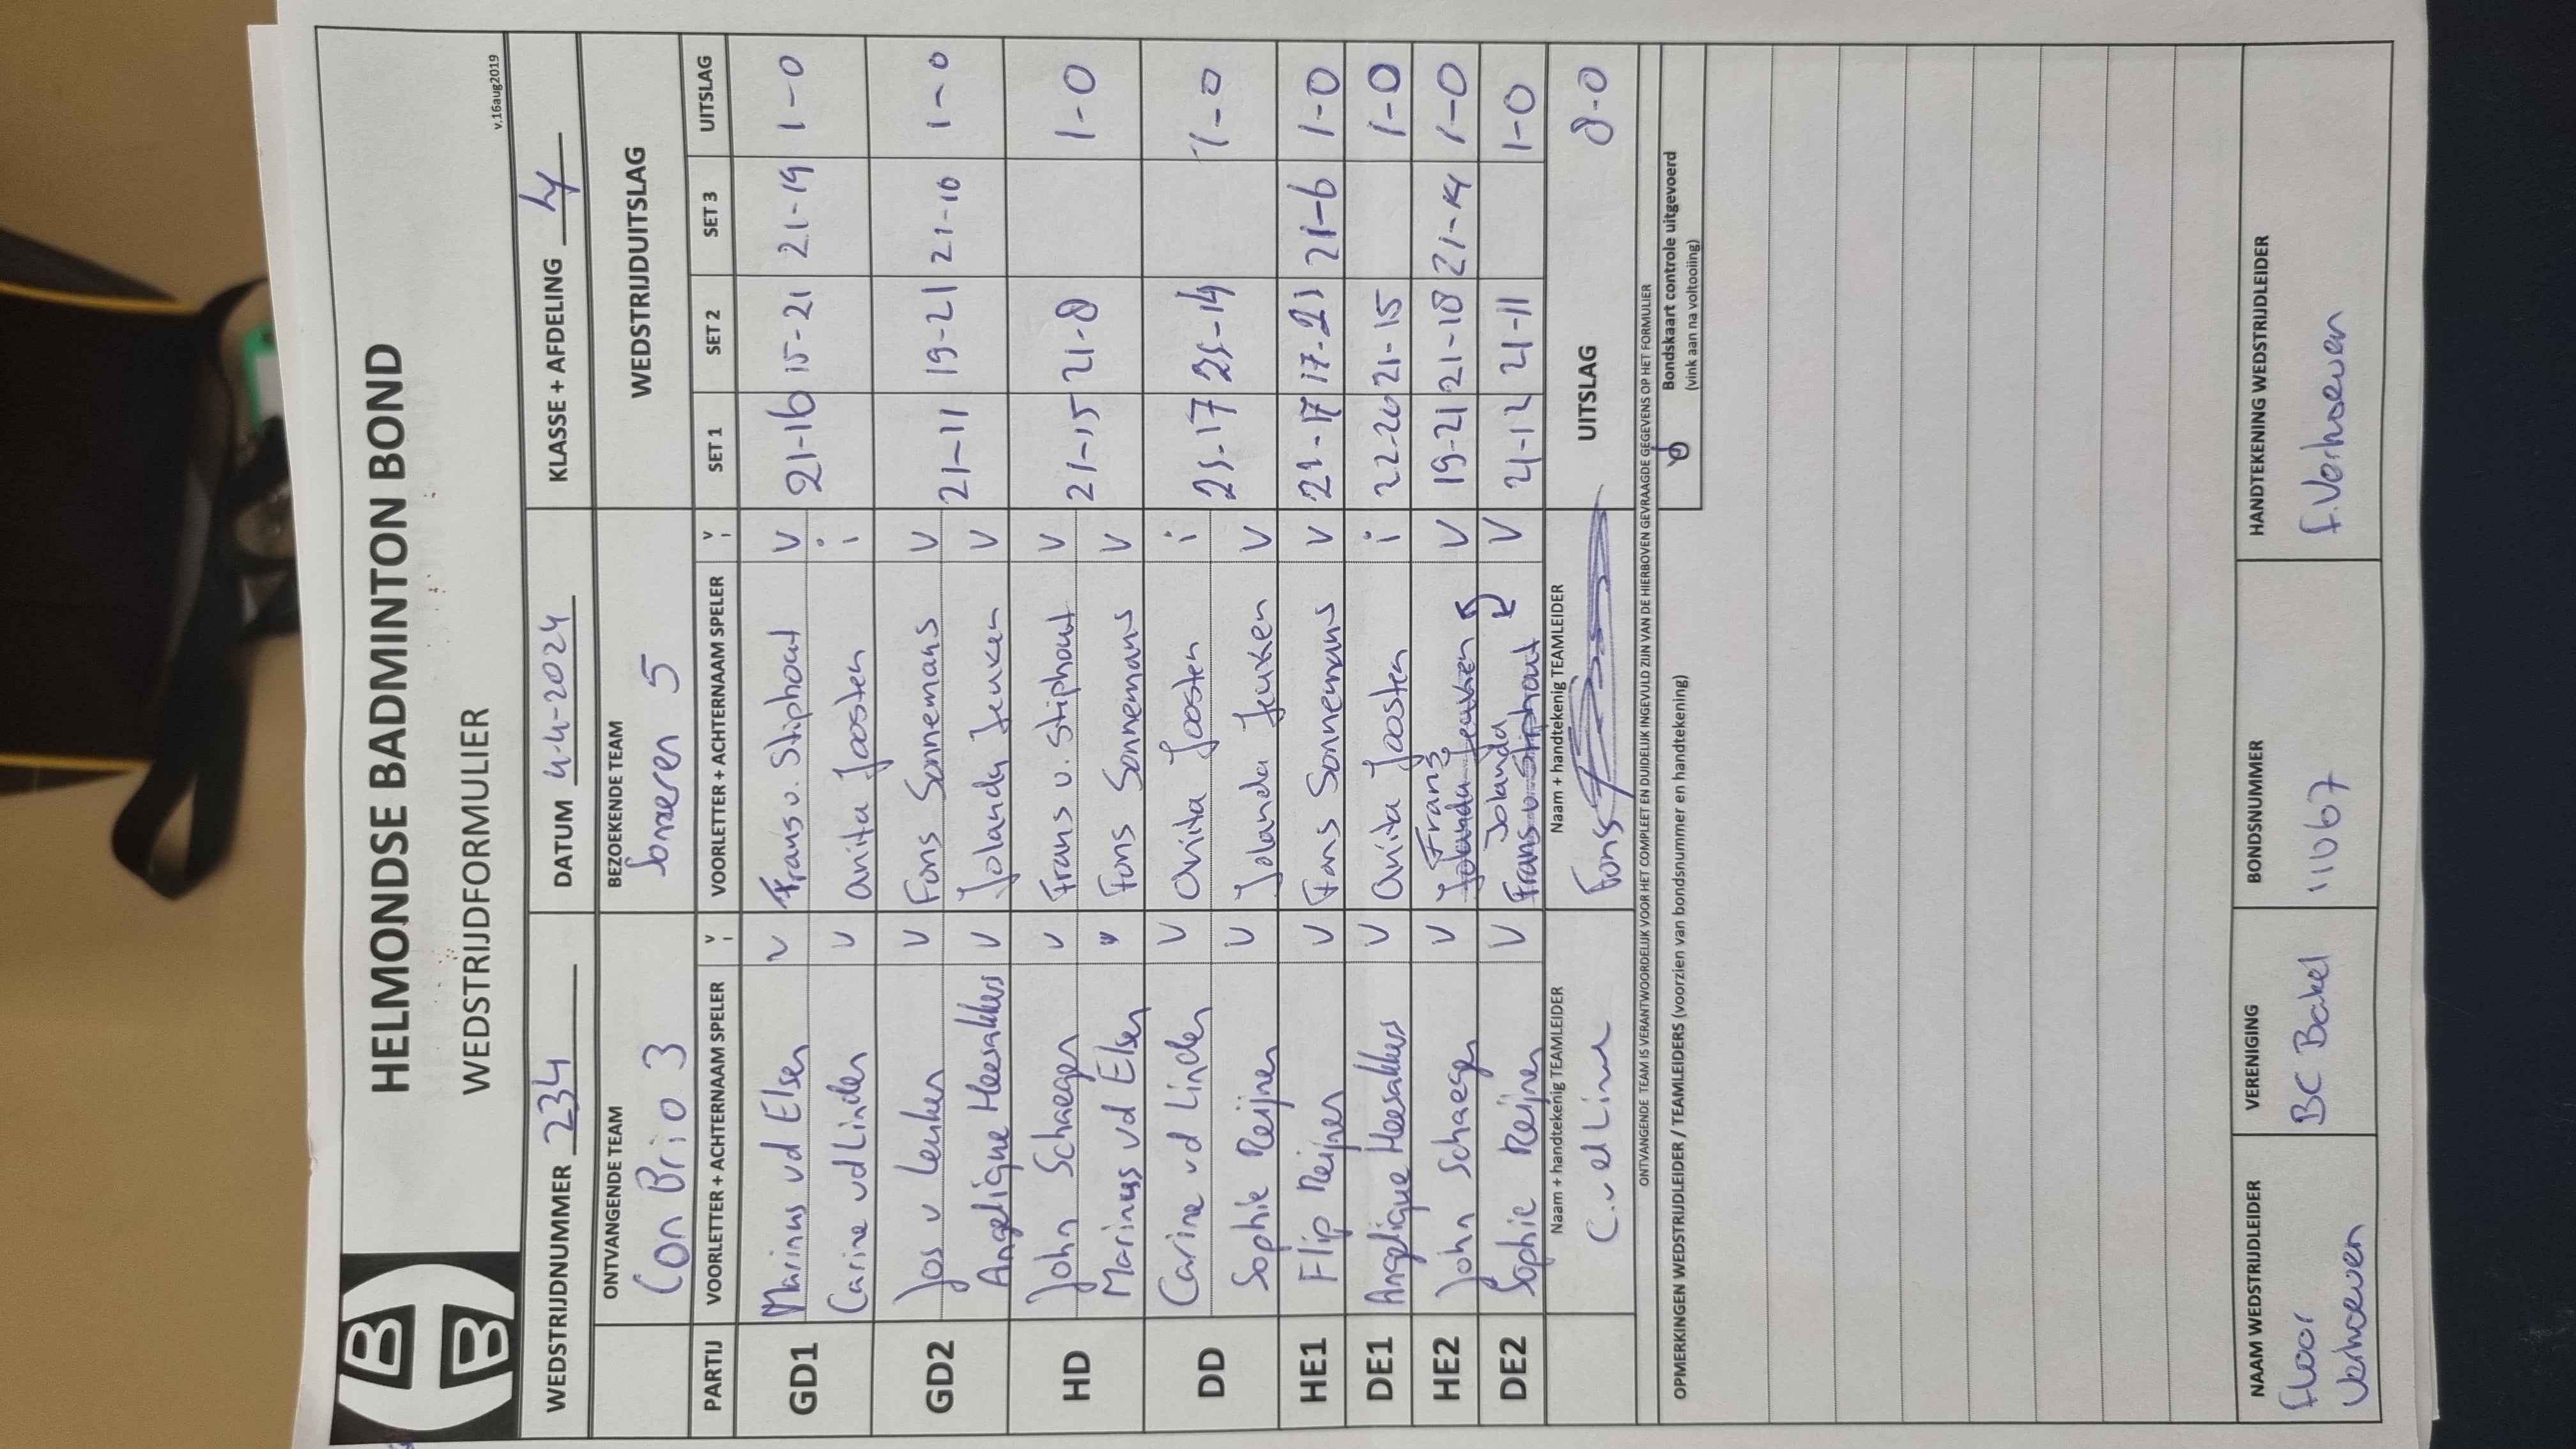 HELMONDSE BADMINTON BOND
WEDSTRIJDFORMULIER
v.16aug2019
WEDSTRIJDNUMMER 234 DATUM 4-4-2024 KLASSE + AFDELING 4
ONTVANGENDE TEAM BEZOEKENDE TEAM WEDSTRIJDUITSLAG
Con Brio 3 Someren 5
PARTIJ VOORLETTER + ACHTERNAAM SPELER V i VOORLETTER + ACHTERNAAM SPELER V i SET 1 SET 2 SET 3 UITSLAG
GD1 Marinus vd Elsen V Frans v. Stiphout V 21-16 15-21 21-19 1-0
Carine vd Linden V Anita Joosten i
GD2 Jos v Leuken V Fons Sonnemans V 21-11 19-21 21-10 1-0
Angelique Heesakkers V Jolanda Jeuken V
HD John Schaeger V Frans v. Stiphout V 21-15 21-8 1-0
Marinus vd Elsen V Fons Sonnemans V
DD Carine vd Linden V Anita Joosten i 21-17 21-14 1-0
Sophie Reijnen V Jolanda Jeuken V
HE1 Flip Reijnen V Fons Sonnemans V 21-17 17-21 21-6 1-0
DE1 Angelique Heesakkers V Anita Joosten i 22-20 21-15 1-0
HE2 John Schaeger V Frans Jolanda Jeuken V 19-21 21-18 21-14 1-0
DE2 Sophie Reijnen V Jolanda Frans v. Stiphout V 21-12 21-11 1-0
Naam + handtekenig TEAMLEIDER Naam + handtekenig TEAMLEIDER UITSLAG 8-0
C. vd Linden Fons
ONTVANGENDE TEAM IS VERANTWOORDELIJK VOOR HET COMPLEET EN DUIDELIJK INGEVULD ZIJN VAN DE HIERBOVEN GEVRAAGDE GEGEVENS OP HET FORMULIER
OPMERKINGEN WEDSTRIJDLEIDER / TEAMLEIDERS (voorzien van bondsnummer en handtekening)
Bondskaart controle uitgevoerd
(vink aan na voltooiing)
NAAM WEDSTRIJDLEIDER VERENIGING BONDSNUMMER HANDTEKENING WEDSTRIJDLEIDER
Floor Verhoeven BC Bakel 11067 F. Verhoeven